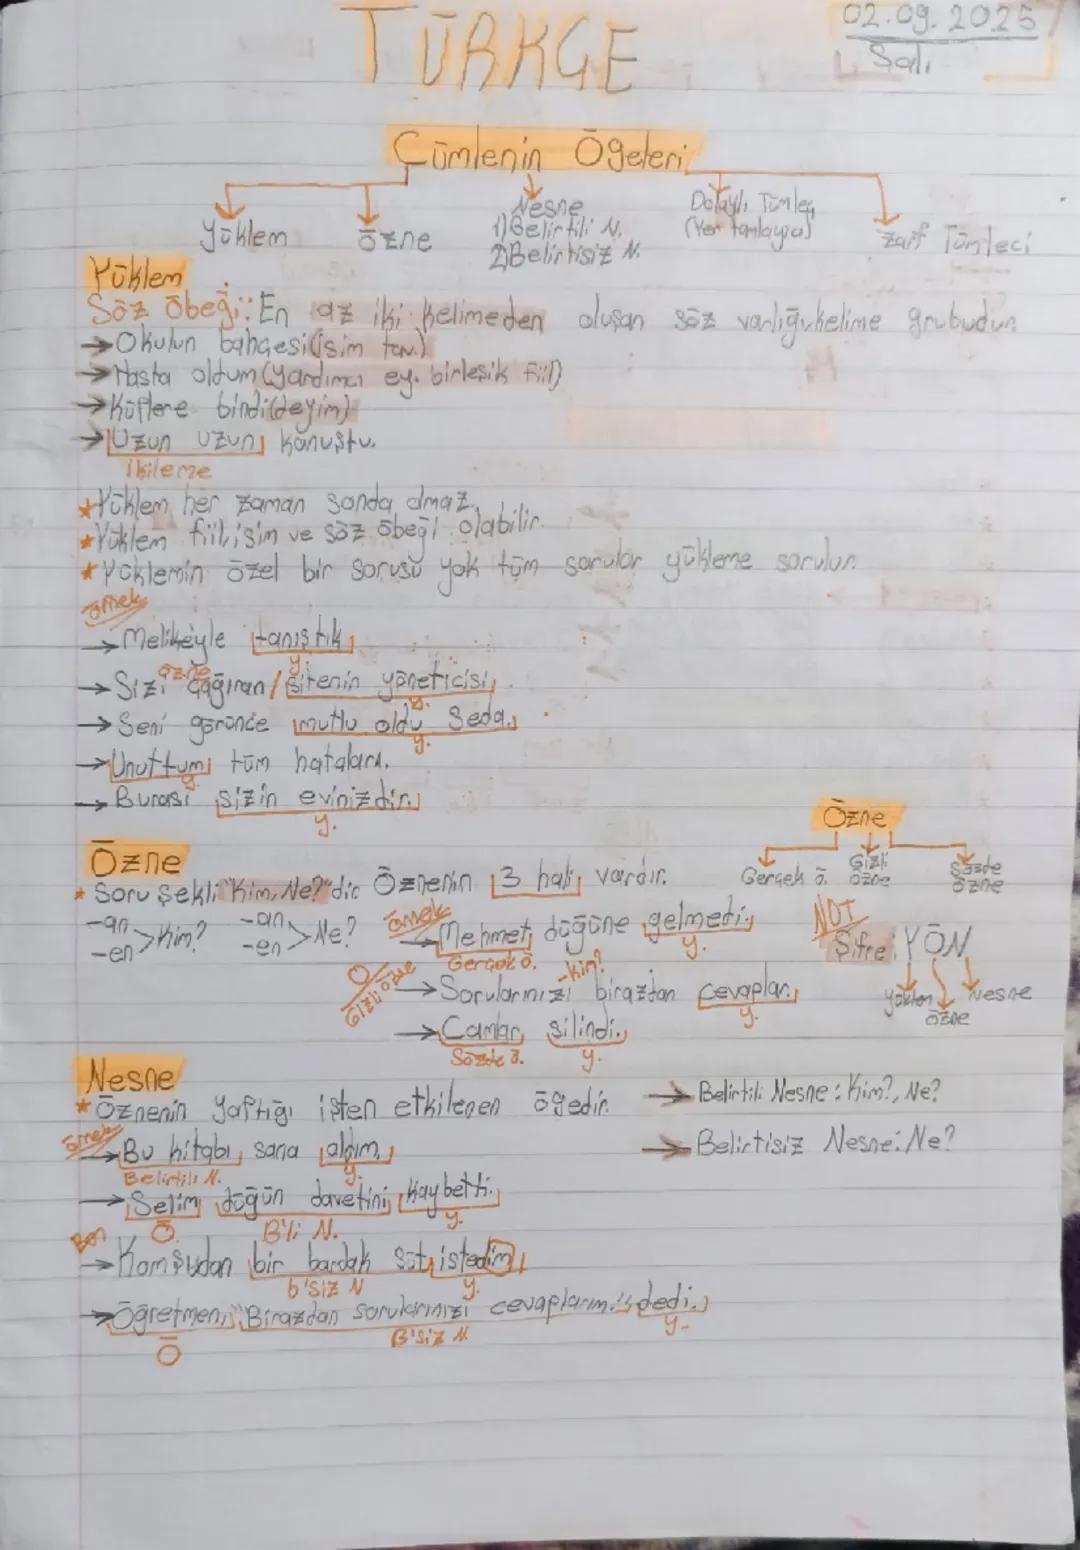 TÜRKÇE
02.09.2025
Salı
Cümlenin Ögeleri
Yüklem
Özne
Nesne
1) Belirtili N.
2) Belirtisiz N.
Dolaylı Tümleç
(Yer tamlayıcı)
Zarf Tümleci
Yüklem
Söz öbeği: En az iki kelimeden oluşan söz varlığı, kelime grubudur.
→ Okulun bahçesi (isim tam.)
→ Hasta oldum (yardımcı ey. birleşik fiil)
→ Küplere bindi (deyim)
→ Uzun uzun konuştu.
ikileme
* Yüklem her zaman sonda olmaz.
* Yüklem fiil, isim ve söz öbeği olabilir.
* Yüklemin özel bir sorusu yok tüm sorular yükleme sorulur.
örnek
→ Melike'yle tanıştık
y.
özne
→ Sizi çağıran / sitenin yöneticisi
y.
→ Seni görünce mutlu oldu Seda.
y.
→ Unuttum tüm hataları.
y.
→ Burası sizin evinizdir.
y.
Özne
* Soru Şekli "Kim, Ne?" dir. Öznenin 3 hali vardır.
-an
-en > Kim?
-an
-en > Ne?
örnek
→ Mehmet düğüne gelmedi.
Gerçek ö. y.
-kim?
O
Gizli özne
→ Sorularınızı birazdan cevaplar.
y.
→ Camlar silindi.
Sözde ö. y.
Özne
Gerçek ö.
Gizli özne
Sözde özne
NOT
Şifre: YÖN
yüklem
özne
Nesne
Nesne
* Öznenin yaptığı işten etkilenen ögedir.
→ Belirtili Nesne: Kim?, Ne?
→ Belirtisiz Nesne: Ne?
örnek
→ Bu kitabı sana aldım.
Belirtili N. y.
→ Selim düğün davetini kaybetti.
Ö. B'li N. y.
Ben
→ Komşudan bir bardak süt istedim.
b'siz N y.
→ Öğretmen, "Birazdan sorularınızı cevaplarım." dedi.
Ö B'siz N. y.